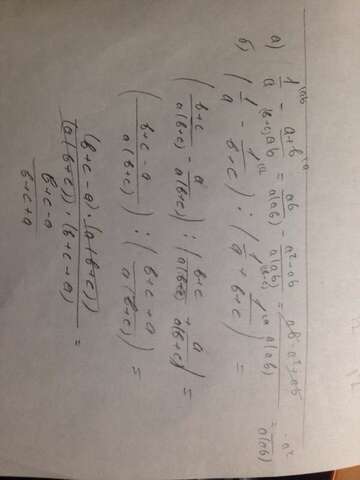 а) 1/a - a+b/ab = ab/a(ab) - a²-ab/a(ab) = ab-a²+ab = -a²/a(ab)
б) (1/a - 1/b+c) : (1/a + 1/b+c) =
(b+c/a(b+c) - a/a(b+c)) : (b+c/a(b+c) + a/a(b+c)) =
(b+c-a/a(b+c)) : (b+c+a/a(b+c)) =
(b+c-a)·(a(b+c))/(a(b+c))·(b+c+a) =
b+c-a/b+c+a